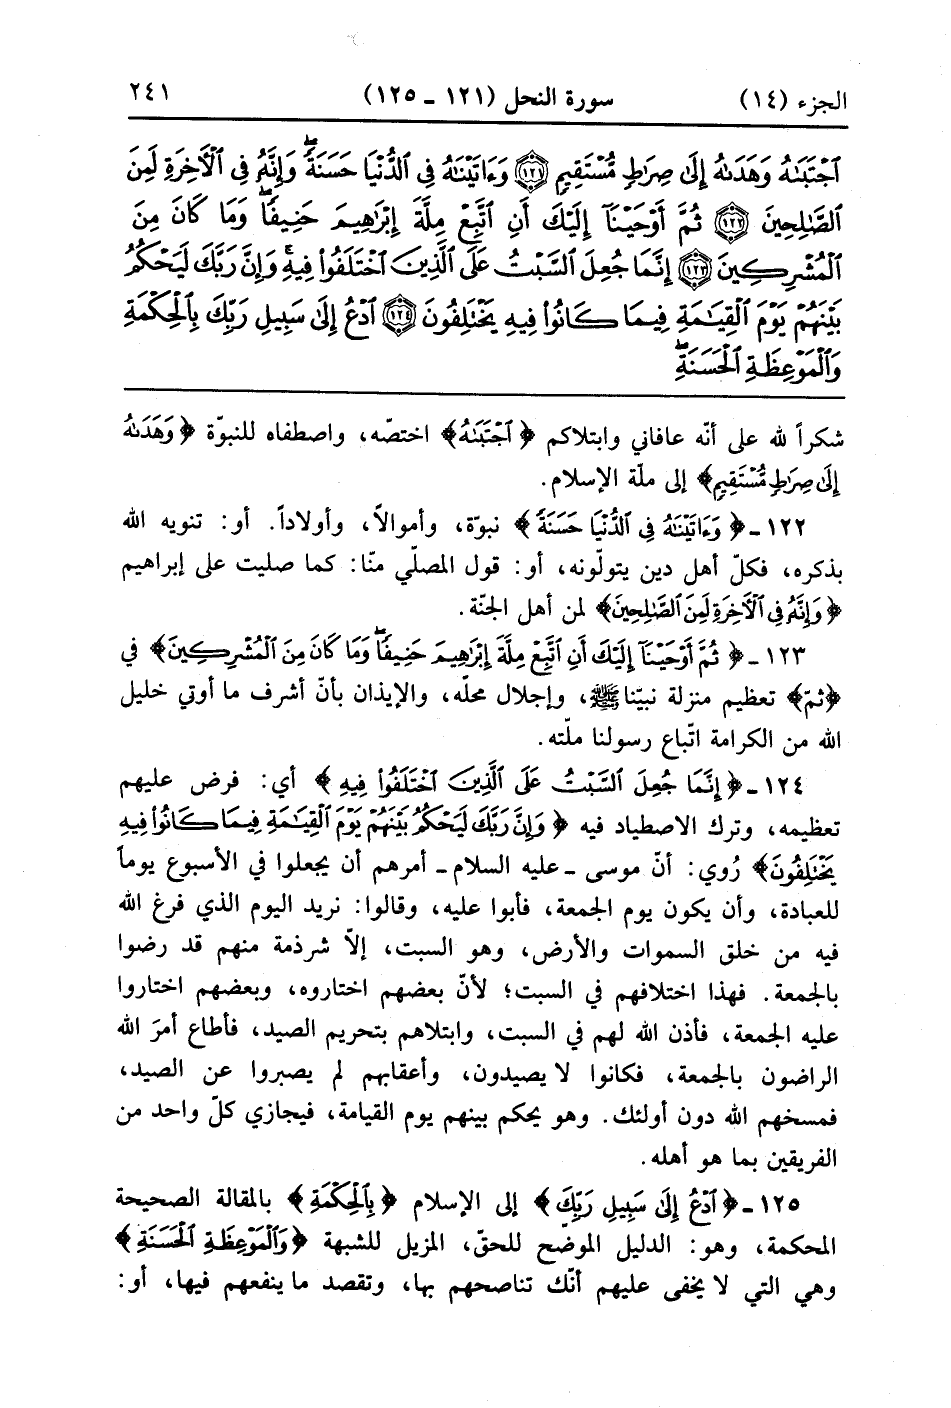 الجزء (١٤) سورة النحل (١٢١ ـ ١٢٥) ٢٤١
ٱجۡتَبَىٰهُ وَهَدَىٰهُ إِلَىٰ صِرَٰطٖ مُّسۡتَقِيمٖ ١٢١ وَءَاتَيۡنَٰهُ فِي ٱلدُّنۡيَا حَسَنَةٗۖ وَإِنَّهُۥ فِي ٱلۡأٓخِرَةِ لَمِنَ
ٱلصَّٰلِحِينَ ١٢٢ ثُمَّ أَوۡحَيۡنَآ إِلَيۡكَ أَنِ ٱتَّبِعۡ مِلَّةَ إِبۡرَٰهِيمَ حَنِيفٗاۖ وَمَا كَانَ مِنَ
ٱلۡمُشۡرِكِينَ ١٢٣ إِنَّمَا جُعِلَ ٱلسَّبۡتُ عَلَى ٱلَّذِينَ ٱخۡتَلَفُواْ فِيهِۚ وَإِنَّ رَبَّكَ لَيَحۡكُمُ
بَيۡنَهُمۡ يَوۡمَ ٱلۡقِيَٰمَةِ فِيمَا كَانُواْ فِيهِ يَخۡتَلِفُونَ ١٢٤ ٱدۡعُ إِلَىٰ سَبِيلِ رَبِّكَ بِٱلۡحِكۡمَةِ
وَٱلۡمَوۡعِظَةِ ٱلۡحَسَنَةِۖ
شكراً لله على أنّه عافاني وابتلاكم ﴿ٱجۡتَبَىٰهُ﴾ اختصّه، واصطفاه للنبوّة ﴿وَهَدَىٰهُ
إِلَىٰ صِرَٰطٖ مُّسۡتَقِيمٖ﴾ إلى ملّة الإسلام.
١٢٢ ـ ﴿وَءَاتَيۡنَٰهُ فِي ٱلدُّنۡيَا حَسَنَةٗ﴾ نبوّة، وأموالاً، وأولاداً. أو: تنويه الله
بذكره، فكلّ أهل دين يتولّونه، أو: قول المصلّي منّا: كما صليت على إبراهيم
﴿وَإِنَّهُۥ فِي ٱلۡأٓخِرَةِ لَمِنَ ٱلصَّٰلِحِينَ﴾ لمن أهل الجنّة.
١٢٣ ـ ﴿ثُمَّ أَوۡحَيۡنَآ إِلَيۡكَ أَنِ ٱتَّبِعۡ مِلَّةَ إِبۡرَٰهِيمَ حَنِيفٗاۖ وَمَا كَانَ مِنَ ٱلۡمُشۡرِكِينَ﴾ في
﴿ثمّ﴾ تعظيم منزلة نبيّنا ﷺ، وإجلال محلّه، والإيذان بأنّ أشرف ما أوتي خليل
الله من الكرامة اتّباع رسولنا ملّته.
١٢٤ ـ ﴿إِنَّمَا جُعِلَ ٱلسَّبۡتُ عَلَى ٱلَّذِينَ ٱخۡتَلَفُواْ فِيهِ﴾ أي: فرض عليهم
تعظيمه، وترك الاصطياد فيه ﴿وَإِنَّ رَبَّكَ لَيَحۡكُمُ بَيۡنَهُمۡ يَوۡمَ ٱلۡقِيَٰمَةِ فِيمَا كَانُواْ فِيهِ
يَخۡتَلِفُونَ﴾ رُوي: أنّ موسى ـ عليه السلام ـ أمرهم أن يجعلوا في الأسبوع يوماً
للعبادة، وأن يكون يوم الجمعة، فأبوا عليه، وقالوا: نريد اليوم الذي فرغ الله
فيه من خلق السموات والأرض، وهو السبت، إلاّ شرذمة منهم قد رضوا
بالجمعة. فهذا اختلافهم في السبت؛ لأنّ بعضهم اختاروه، وبعضهم اختاروا
عليه الجمعة، فأذن الله لهم في السبت، وابتلاهم بتحريم الصيد، فأطاع أمرَ الله
الراضون بالجمعة، فكانوا لا يصيدون، وأعقابهم لم يصبروا عن الصيد،
فمسخهم الله دون أولئك. وهو يحكم بينهم يوم القيامة، فيجازي كلّ واحد من
الفريقين بما هو أهله.
١٢٥ ـ ﴿ٱدۡعُ إِلَىٰ سَبِيلِ رَبِّكَ﴾ إلى الإسلام ﴿بِٱلۡحِكۡمَةِ﴾ بالمقالة الصحيحة
المحكمة، وهو: الدليل الموضّح للحقّ، المزيل للشبهة ﴿وَٱلۡمَوۡعِظَةِ ٱلۡحَسَنَةِ﴾
وهي التي لا يخفى عليهم أنّك تناصحهم بها، وتقصد ما ينفعهم فيها، أو: